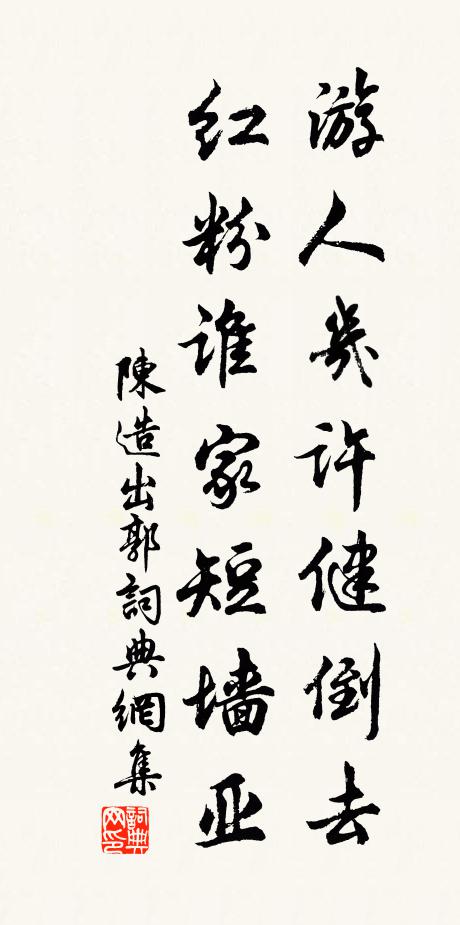 游人几许健倒去
红粉谁家短墙亚
陳造出郭詞典網集
詞典网印